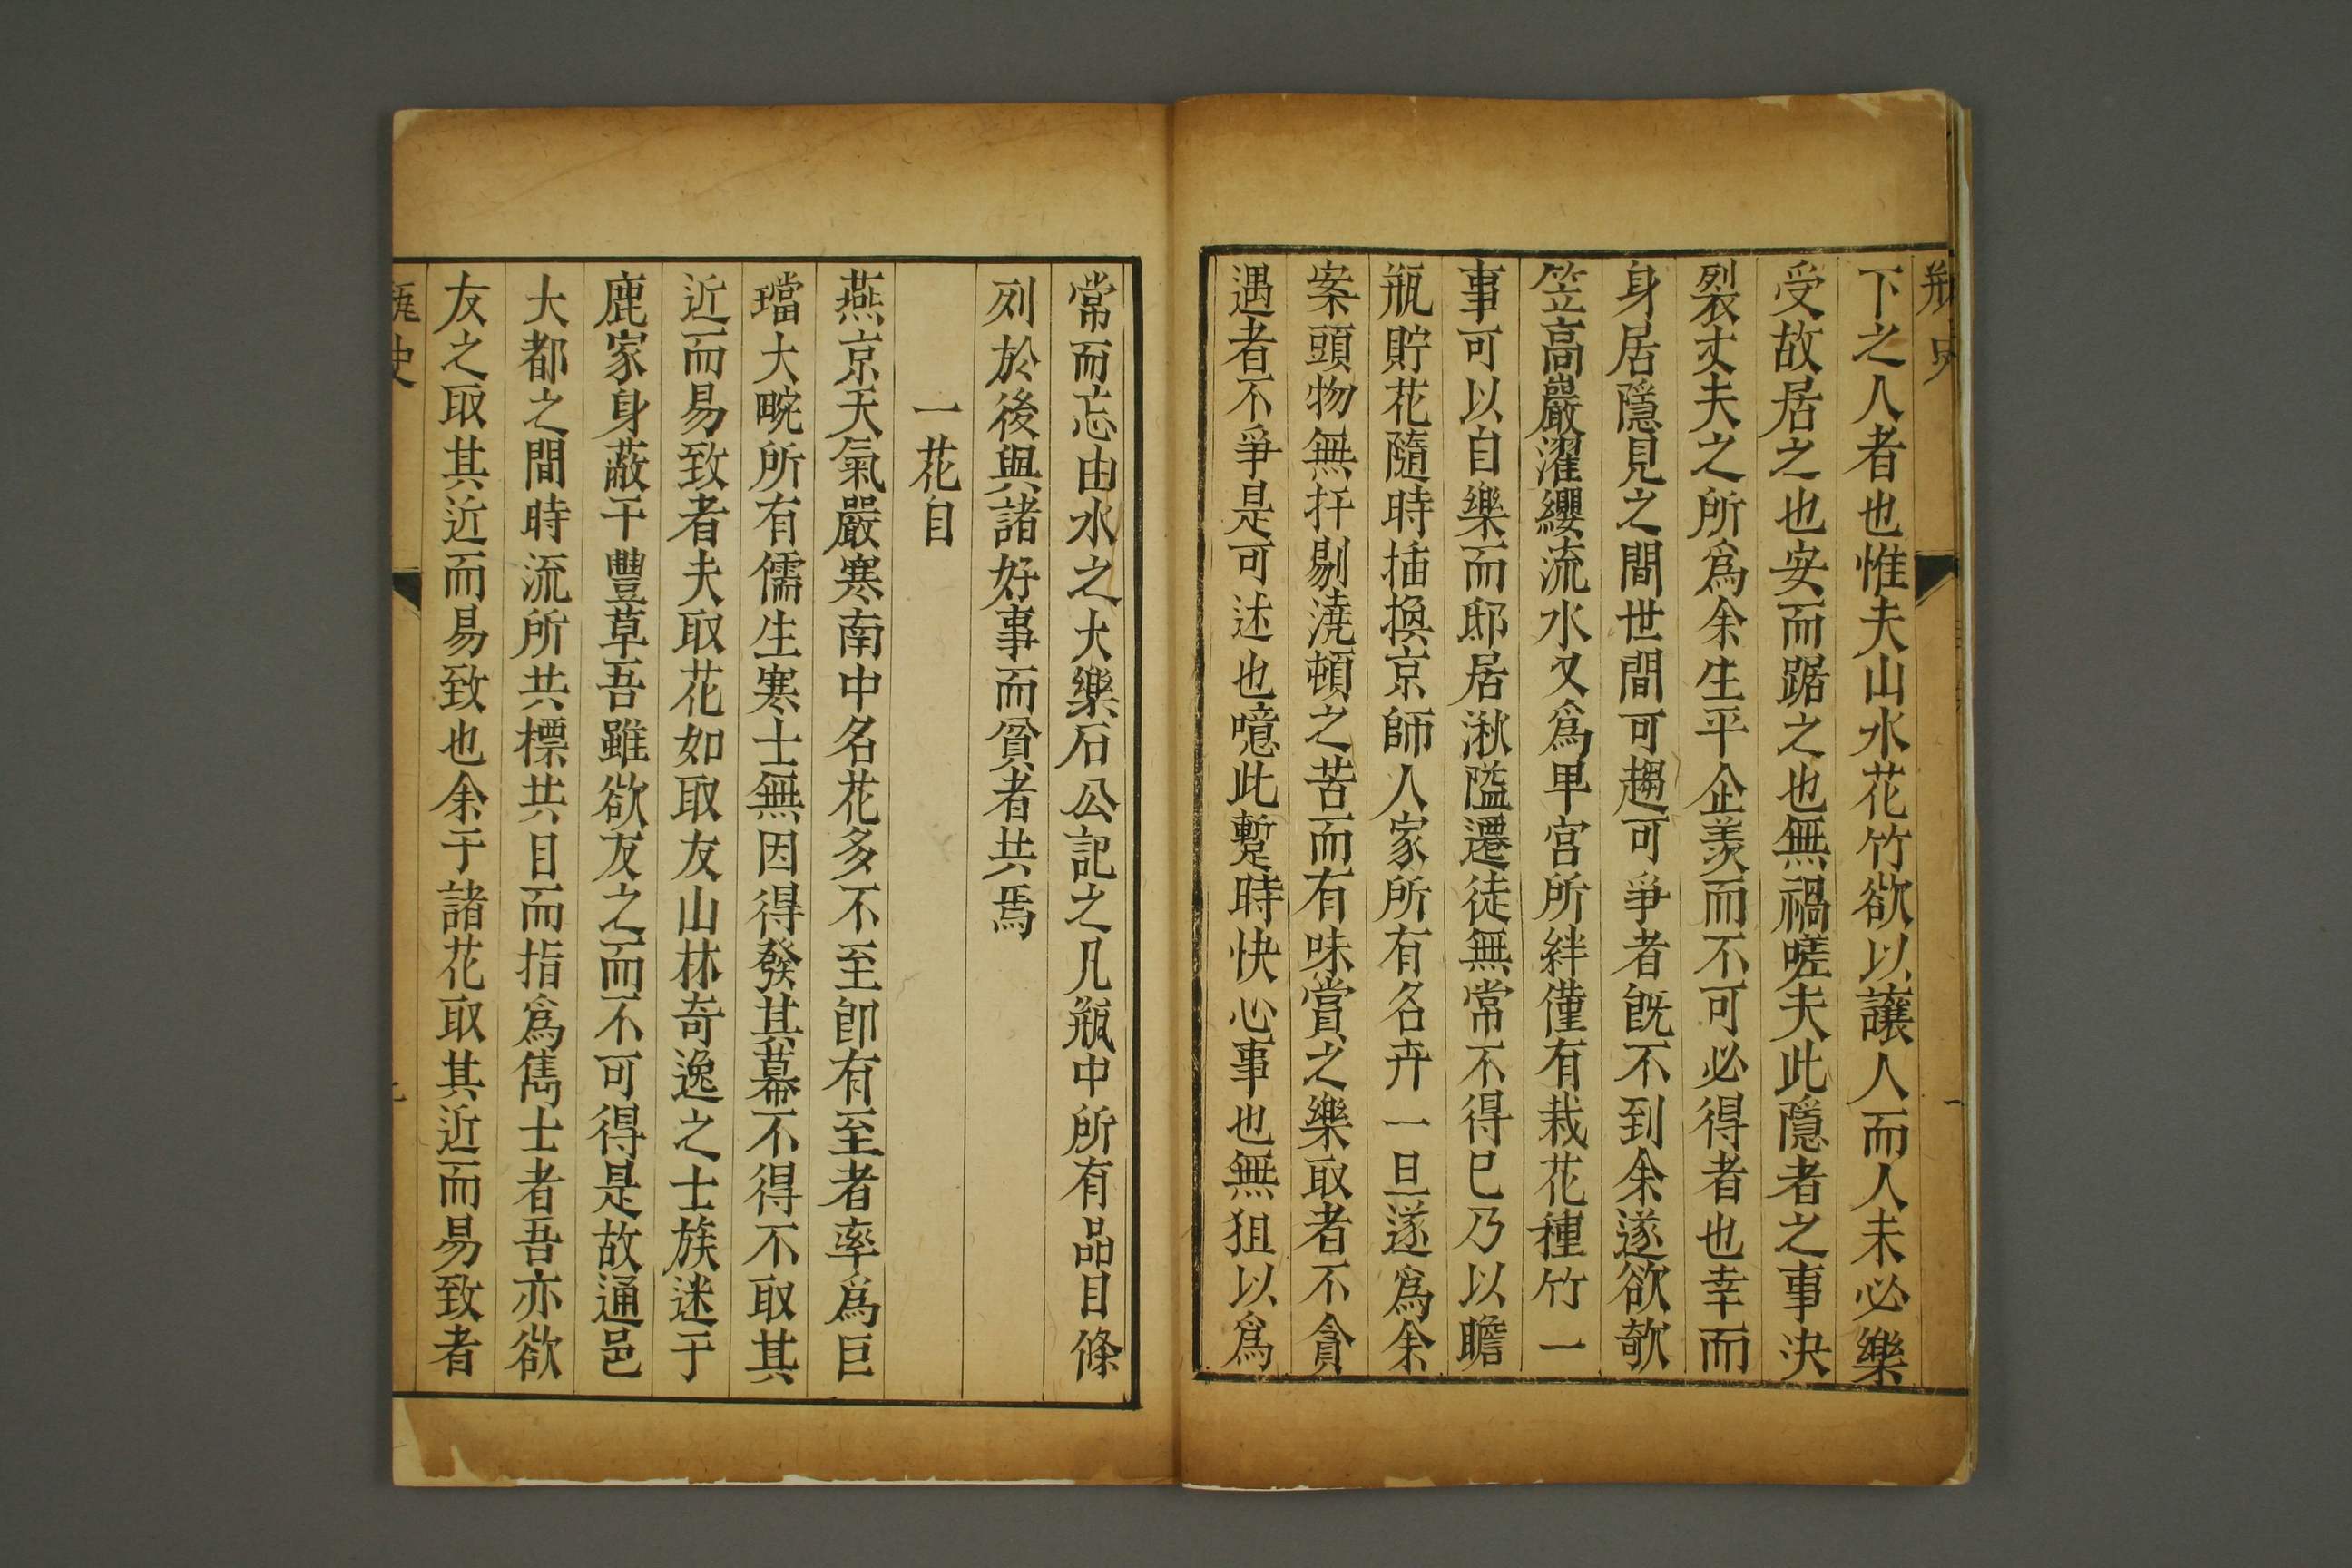 瓶史
一
下之人者也惟夫山水花竹欲以讓人而人未必樂
受故居之也安而踞之也無禍嗟夫此隱者之事決
裂丈夫之所爲余生平企羨而不可必得者也幸而
身居隱見之間世間可趨可爭者旣不到余遂欲欹
笠高巖濯纓流水又爲卑宮所絆僅有栽花種竹一
事可以自樂而邸居湫隘遷徙無常不得已乃以膽
瓶貯花隨時插換京師人家所有名卉一旦遂爲余
案頭物無扞剔澆頓之苦而有味賞之樂取者不貪
遇者不爭是可述也噫此暫時快心事也無狃以爲
常而忘由水之大樂石公記之凡瓶中所有品目條
列於後與諸好事而貧者共焉
一花目
燕京天氣嚴寒南中名花多不至卽有至者率爲巨
璫大畹所有儒生寒士無因得發其幕不得不取其
近而易致者夫取花如取友山林奇逸之士族迷于
鹿豕身蔽于豐草吾雖欲友之而不可得是故通邑
大都之間時流所共標共目而指爲雋士者吾亦欲
友之取其近而易致也余于諸花取其近而易致者
瓶史